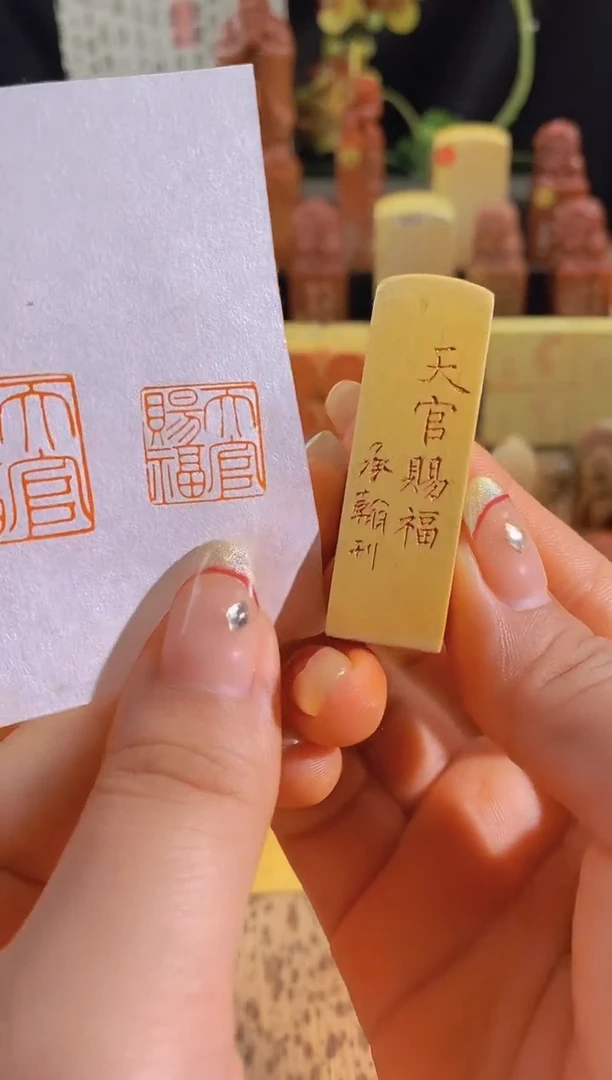 天官賜福
承翰刊
天官
賜福
天官